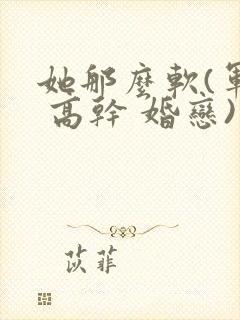 她那麼軟(軍
高幹 婚戀)
苡菲